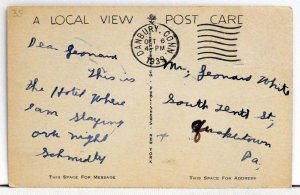 A LOCAL VIEW POST CARD
DANBURY, CONN.
OCT 6
4 - PM
1939
Dear Leonard
This is
the Hotel Where
I am Staying
one night
Schmidty
Mr. Leonard White
South Tenth St,
Quakertown
Pa.
THIS SPACE FOR MESSAGE
THIS SPACE FOR ADDRESS